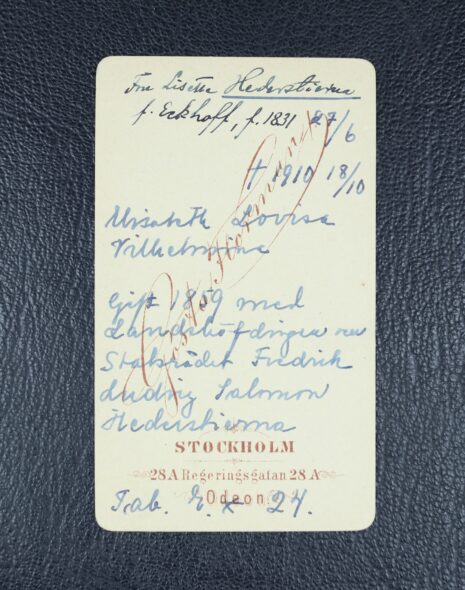 Fru Lisette Hederstierna
f. Eckhoff, f. 1831 27/6
† 1910 18/10
Elisabeth Lovisa
Vilhelmina
Gösta Florman
Gift 1859 med
Landshöfdingen
Statsrådet Fredrik
Ludvig Salomon
Hederstierna
STOCKHOLM
28A Regeringsgatan 28A
Odeon
Tab. 24.